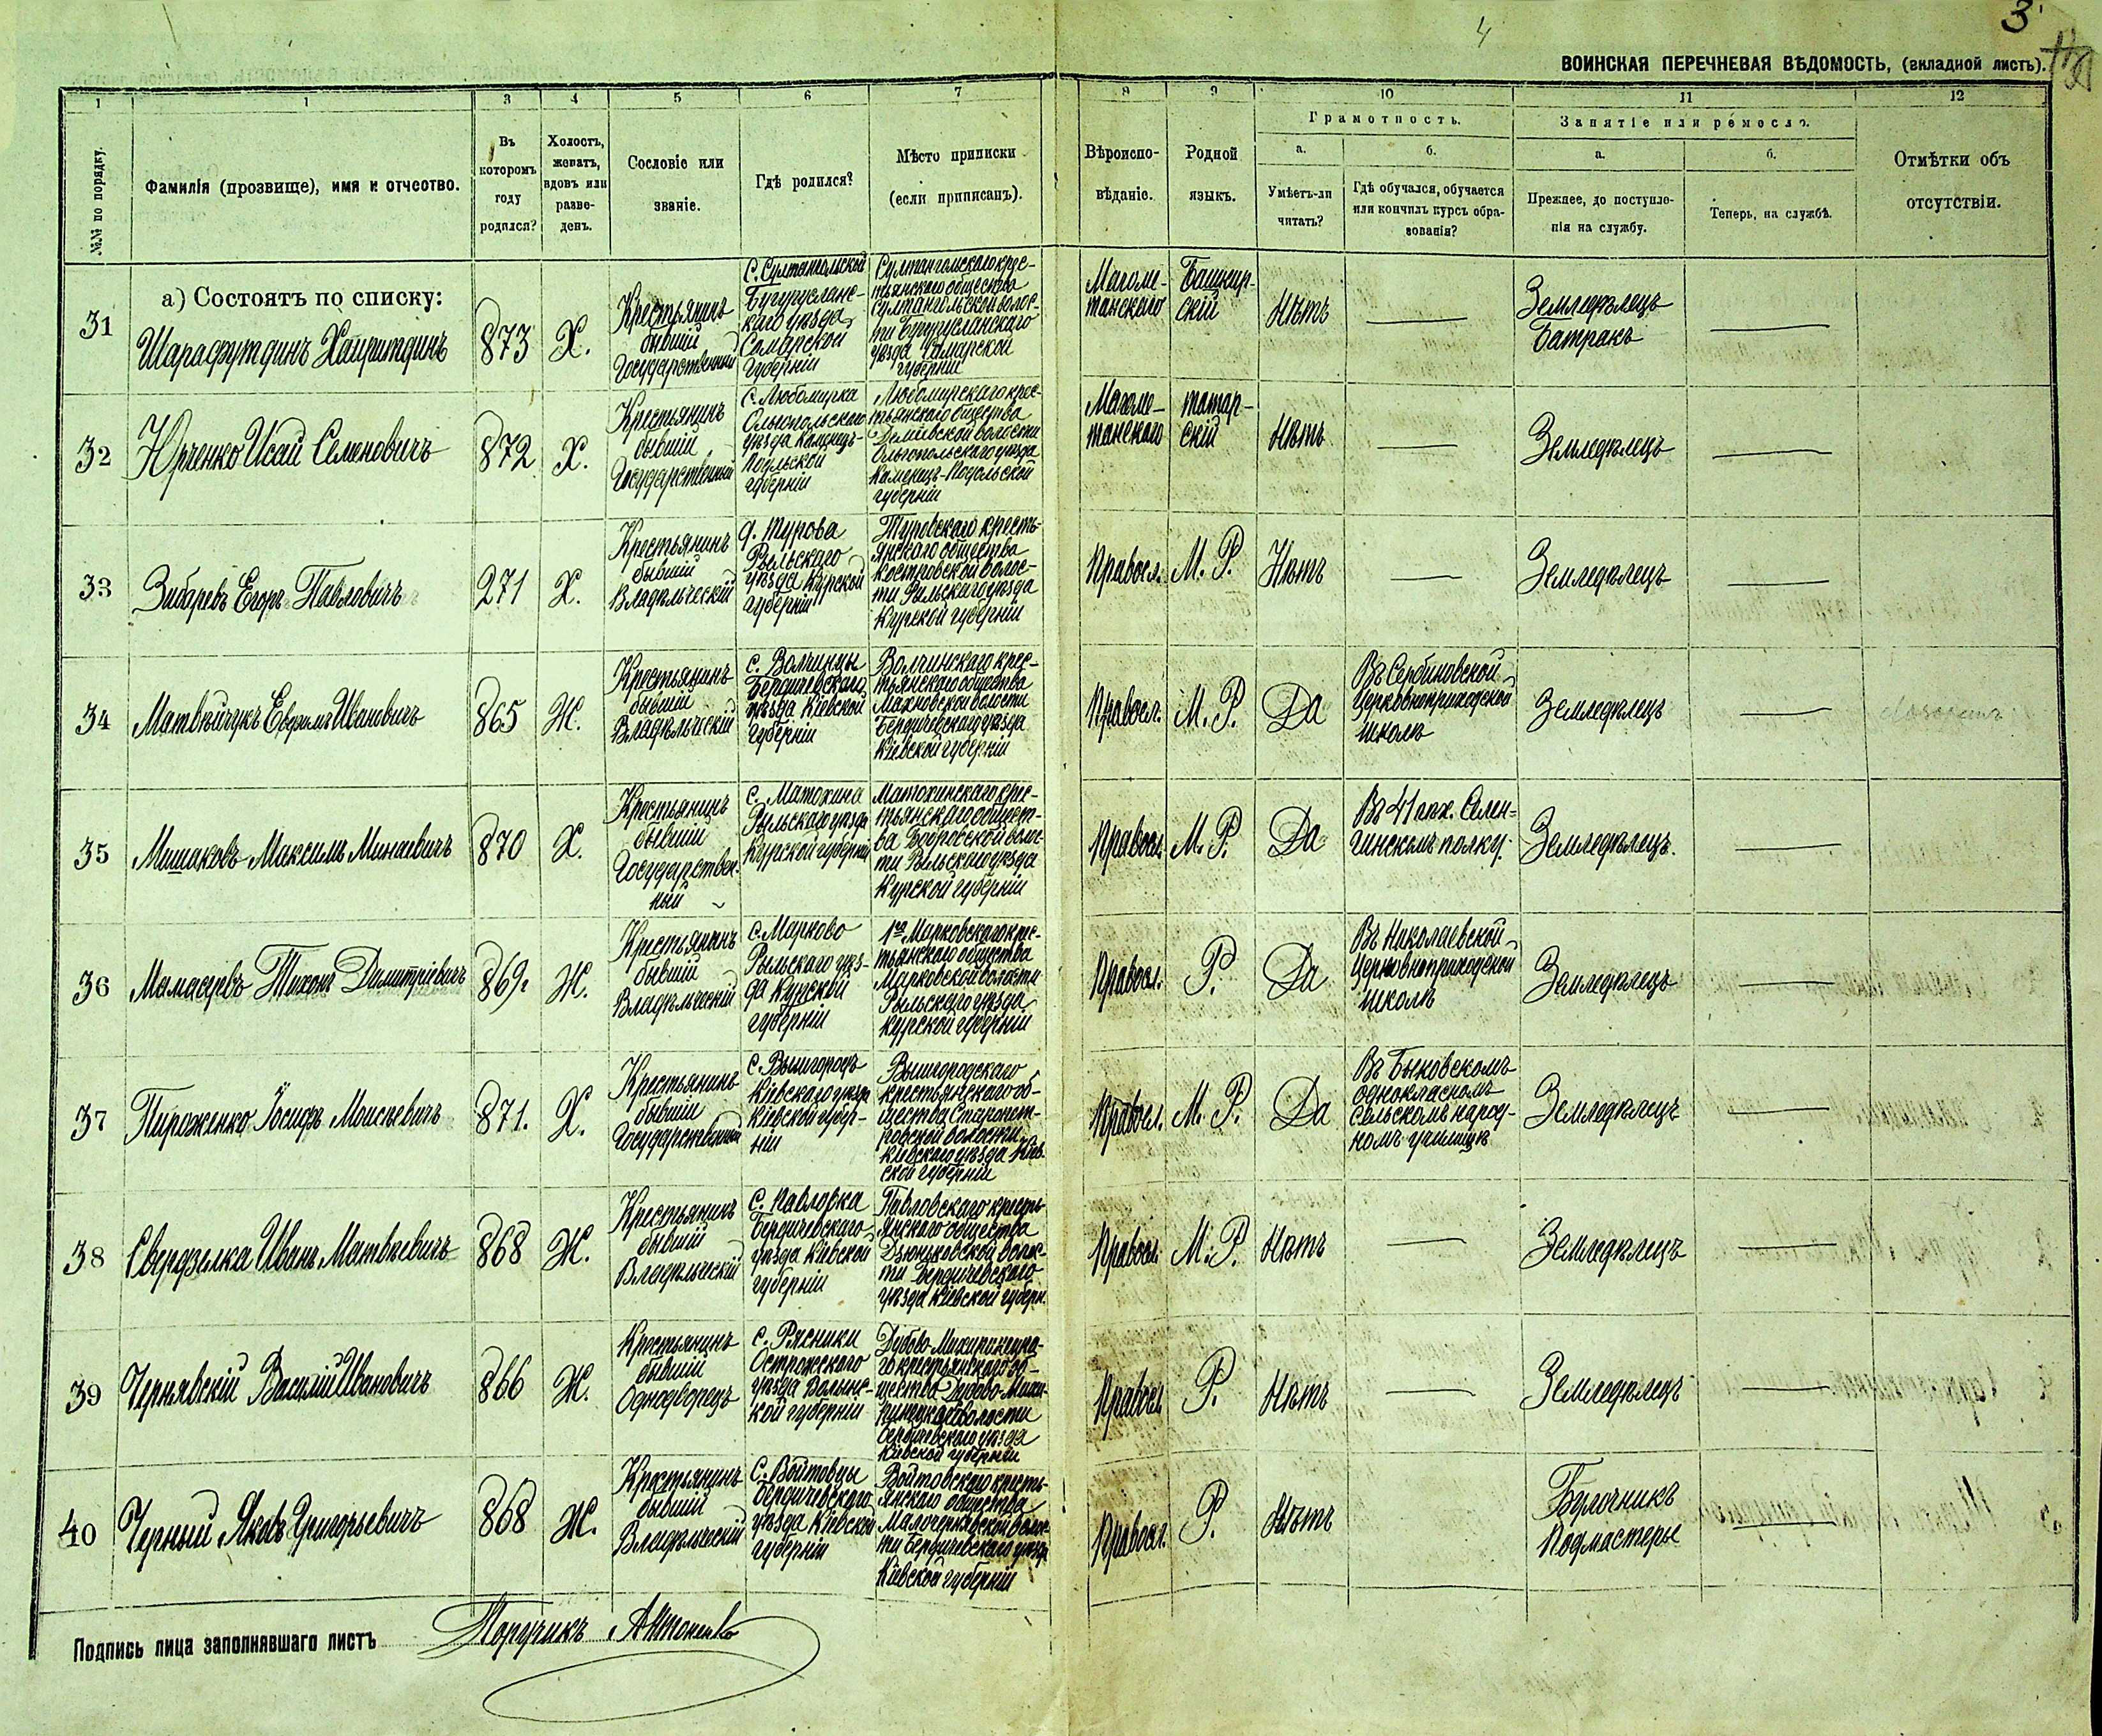 4
3
ВОИНСКАЯ ПЕРЕЧНЕВАЯ ВѢДОМОСТЬ, (вкладной листъ).
1
1
3
4
5
6
7
8
9
10
11
12
№№ по порядку.
Фамилія (прозвище), имя и отчество.
Въ
которомъ
году
родился?
Холостъ,
женатъ,
вдовъ или
разве-
денъ.
Сословіе или
званіе.
Гдѣ родился?
Мѣсто приписки
(если приписанъ).
Вѣроиспо-
вѣданіе.
Родной
языкъ.
Грамотность.
а.
Умѣетъ-ли
читать?
б.
Гдѣ обучался, обучается
или кончилъ курсъ обра-
зованія?
Занятіе или ремесло.
а.
Прежнее, до поступле-
нія на службу.
б.
Теперь, на службѣ.
Отмѣтки объ
отсутствіи.
а) Состоятъ по списку:
31
Шарафутдинъ Хайритдинъ
873
Х.
Крестьянинъ
бывшій
Государственный
С. Султангольской
Бугурусланс-
каго уѣзда
Самарской
губерніи
Султангольскаго крес-
тьянскаго общества
Султангольской волос-
ти Бугурусланскаго
уѣзда Самарской
губерніи
Магоме-
танскаго
Башкир-
скій
Нѣтъ
Земледѣлецъ
Батракъ
32
Юрченко Исай Семеновичъ
872
Х.
Крестьянинъ
бывшій
Государственный
С. Любомирка
Ольгопольскаго
уѣзда Каменецъ-
Подльской
губерніи
Любомирскаго крес-
тьянскаго общества
волости
Ольгопольскаго уѣзда
Каменецъ-Подольской
губерніи
Магоме-
танскаго
татар-
скій
Нѣтъ
Земледѣлецъ
33
Зибаревъ Егоръ Павловичъ
271
Х.
Крестьянинъ
бывшій
Владѣльческій
д. Турова
Рыльскаго
уѣзда Курской
губерніи
Туровскаго кресть-
янскаго общества
Костровской волос-
ти Рыльскаго уѣзда
Курской губерніи
Правосл.
М. Р.
Нѣтъ
Земледѣлецъ
34
Матвѣйчукъ Евдокимъ Ивановичъ
865
Ж.
Крестьянинъ
бывшій
Владѣльческій
с. Волчинцы
Бердичевскаго
уѣзда Кіевской
губерніи
Волчинскаго крес-
тьянскаго общества
Махновской волости
Бердичевскаго уѣзда
Кіевской губерніи
Правосл.
М. Р.
Да
Въ Сербиновской
Церковноприходской
школѣ
Земледѣлецъ
35
Мишаковъ Максимъ Минаевичъ
870
Х.
Крестьянинъ
бывшій
Государствен-
ный
с. Матохина
Рыльскаго уѣзда
Курской губерніи
Матохинскаго крес-
тьянскаго общест-
ва Бобровской волос-
ти Рыльскаго уѣзда
Курской губерніи
Правосл.
М. Р.
Да
Въ 41 пѣх. Селен-
гинскомъ полку.
Земледѣлецъ.
36
Мамаевъ Тихонъ Димитріевичъ
869.
Ж.
Крестьянинъ
бывшій
Владѣльческій
с. Марково
Рыльскаго уѣз-
да Курской
губерніи
1го Марковскаго крес-
тьянскаго общества
Марковской волости
Рыльскаго уѣзда
Курской губерніи
Правосл.
Р.
Да
Въ Николаевской
Церковноприходской
школѣ
Земледѣлецъ
37
Пироженко Іосифъ Моисѣевичъ
871.
Х.
Крестьянинъ
бывшій
Государственный
с. Вышгородъ
Кіевскаго уѣзда
Кіевской губер-
ніи
Вышгородскаго
крестьянскаго об-
щества Старопет-
ровской волости
Кіевскаго уѣзда Кіев-
ской губерніи
Правосл.
М. Р.
Да
Въ Быковскомъ
однокласномъ
сельскомъ народ-
номъ училищѣ
Земледѣлецъ
38
Свердѣлка Иванъ Матвѣевичъ
868
Ж.
Крестьянинъ
бывшій
Владѣльческій
с. Павловка
Бердичевскаго
уѣзда Кіевской
губерніи
Павловскаго кресть-
янскаго общества
Дзюньковской волос-
ти Бердичевскаго
уѣзда Кіевской губерн.
Правосл.
М. Р.
Нѣтъ
Земледѣлецъ
39
Чернявскій Василій Ивановичъ
866
Ж.
Крестьянинъ
бывшій
Однодворецъ
с. Рясники
Острожскаго
уѣзда Волынс-
кой губерніи
Дубово-Махаринецка-
го крестьянскаго об-
щества Дубово-Маха-
волости
Бердичевскаго уѣзда
Кіевской губерніи
Правосл.
Р.
Нѣтъ
Земледѣлецъ
40
Черный Яковъ Григорьевичъ
868
Ж.
Крестьянинъ
бывшій
Владѣльческій
С. Войтовцы
Бердичевскаго
уѣзда Кіевской
губерніи
Войтовскаго кресть-
янскаго общества
Малочернявской волос-
ти Бердичевскаго уѣзда
Кіевской губерніи
Правосл.
Р.
Нѣтъ
Булочникъ
Подмастерье
Подпись лица заполнявшаго листъ Поручикъ Антоненко